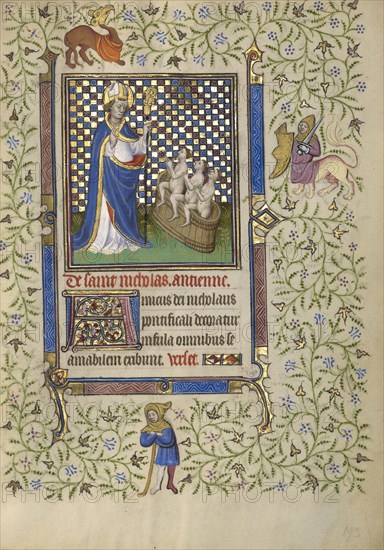 De saint nicholas. antienne.
Amicus dei nicholaus
pontificali decoratus
infula omnibus se
amabilem exibuit. verset.